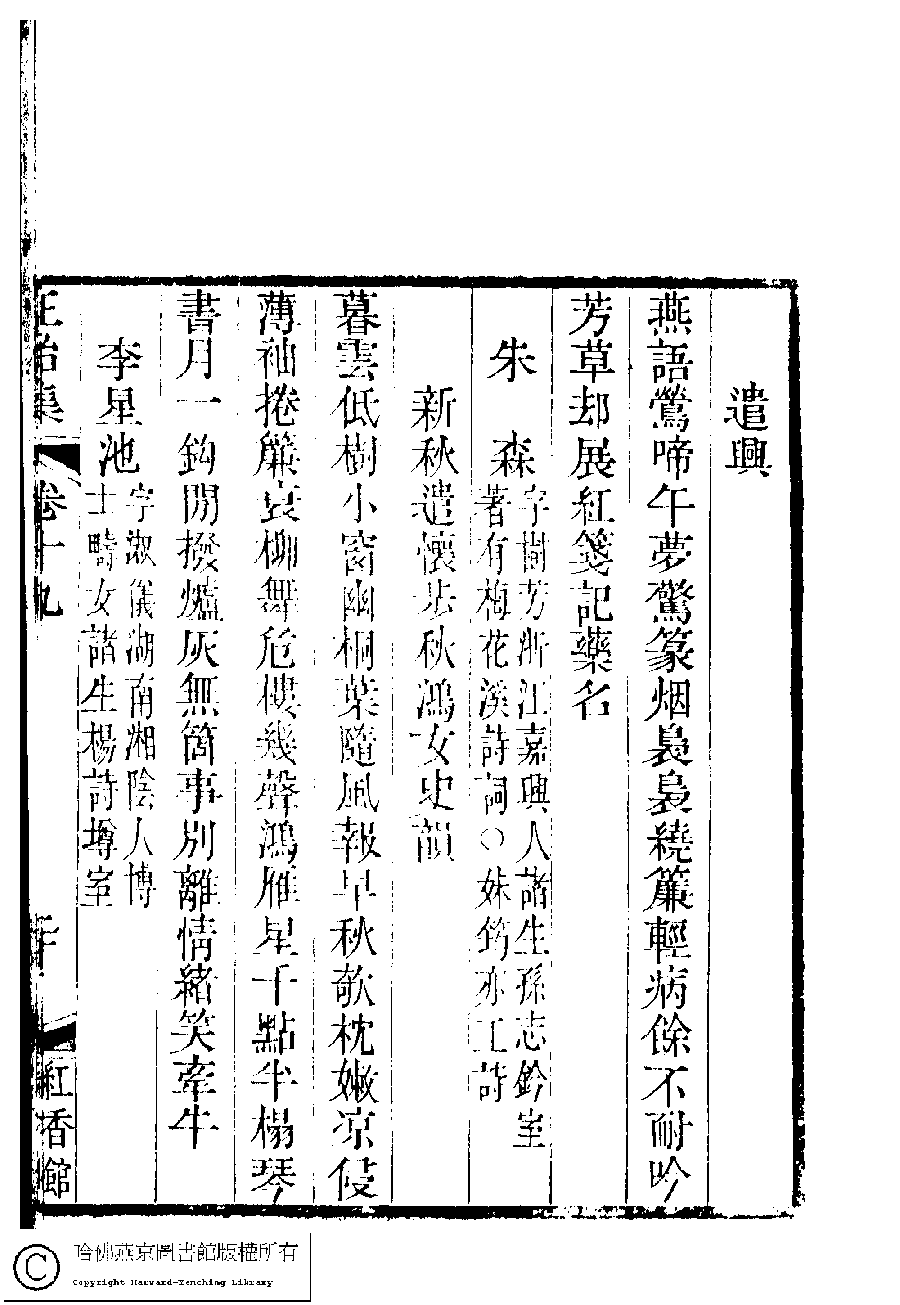 遣興
燕語鶯啼午夢驚篆烟裊裊繞簾輕病餘不耐吟
芳草却展紅箋記藥名
朱 森 字樹芳浙江嘉興人諸生孫志鈐室
著有梅花溪詩詞○妹筠亦工詩
新秋遣懷步秋鴻女史韻
暮雲低樹小窗幽桐葉隨風報早秋欹枕嫩凉侵
薄袖捲簾衰柳舞危樓幾聲鴻雁星千點半榻琴
書月一鈎閒撥爐灰無箇事別離情緒笑牽牛
李星池 字淑儀湖南湘陰人博
士疇女諸生楊詩壿室
正始集 卷十九 二十 紅香館
哈佛燕京圖書館版權所有
Copyright Harvard-Yenching Library